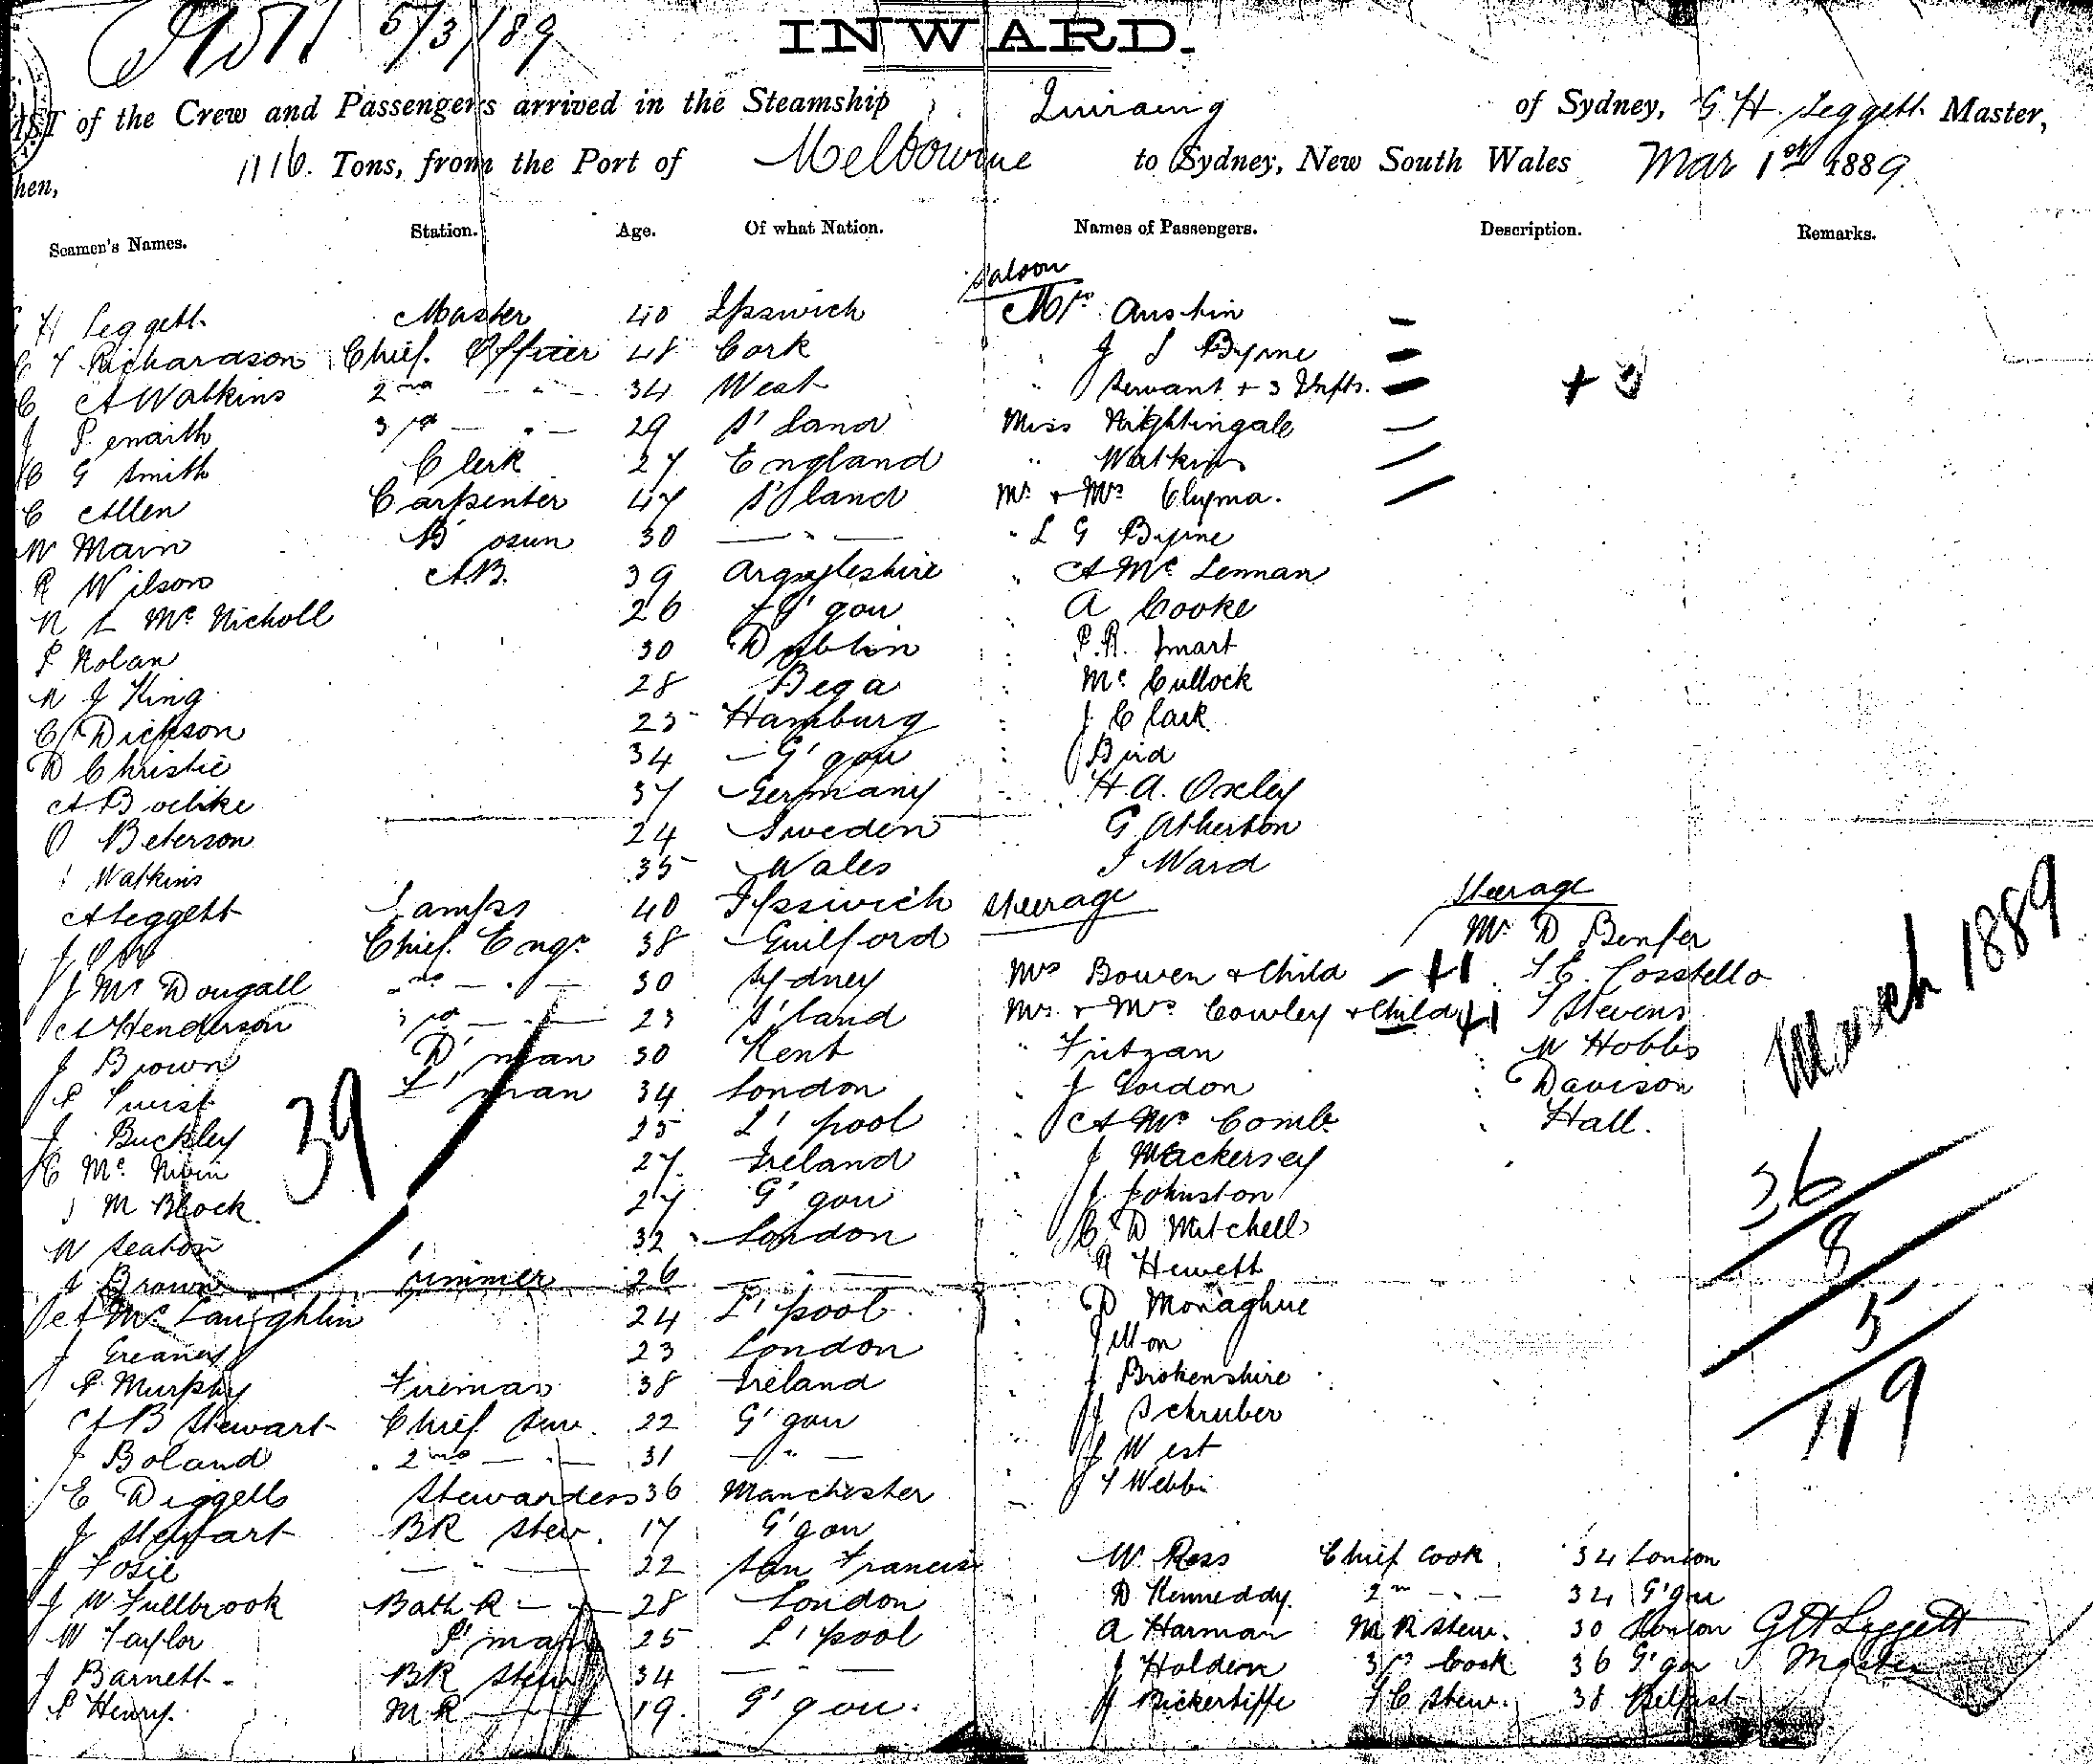 5/3/89
INWARD.
LIST of the Crew and Passengers arrived in the Steamship Quiraing of Sydney, G. H. Leggett Master,
1116. Tons, from the Port of Melbourne to Sydney, New South Wales Mar 1st 1889.
Seamen's Names. Station. Age. Of what Nation. Names of Passengers. Description. Remarks.
Saloon
G H Leggett Master 40 Ipswich Mrs Austin
Richardson Chief Officer 48 Cork " J S Byrne
A Watkins 2nd — " — 34 West " Servant + 3 Infts. + 3
J Penarth 3rd — " — 29 S'land Miss Nightingale
G Smith Clerk 27 England " Watkins
C Allen Carpenter 47 S'land Mr + Mrs Clyma.
W Main B'osun 30 — " — " L G Byrne
R Wilson A.B. 39 Argyleshire " A Mc Lennan
N L Mc Nicholl 26 G'gow " A Cooke
P Nolan 30 Dublin P. R. Smart
W J King 28 Bega Mc Cullock
C Dickson 25 Hamburg J Clark
D Christie 34 G'gow Bird
A Boelike 37 Germany H. A. Oxley
O Beterson 24 Sweden G Atherton
Watkins 35 Wales J Ward
A Leggett Lamps 40 Ipswich Steerage Steerage
J Orr Chief Engr 38 Guilford Mr D Benfer
J Mc Dougall 2nd — " — 30 Sydney Mrs Bowen + Child + 1 Costello
A Henderson 3rd — " — 23 S'land Mr + Mrs Cowley + Child + 1 Stevens
J Brown D'man 30 Kent " Fritzan W Hobbs
P Twist F'man 34 London " J Gordon Davison
J Buckley 25 L'pool " A Mc Comb Hall.
Mc Nivin 27 Ireland J Mackersey
M Block 27 G'gow J Johnston
W Seaton 32 London C D Mitchell
J Brown Trimmer 26 — " — R Hewett
A Mc Laughlin 24 L'pool D Monaghue
J Greaney 23 London
P Murphy Fireman 38 Ireland J Brokenshire
A B Stewart Chief Stew. 22 G'gow J Schruber
J Boland 2nd — " — 31 — " — J West
E Diggells Stewardess 36 Manchester
J Stewart BR Stew. 17 G'gow
J Fosie — " — 22 San Francis W Ross Chief Cook 34 London
J W Fullbrook Bath R — " — 28 London D Kenneddy. 2nd — " — 34 G'gow
W Taylor P'man 25 L'pool A Harman M R Stew. 30 London G H Leggett
J Barnett BR Stew 34 — " — J Holdern 3rd Cook 36 G'gow Master
P Henry. M R — " — 19. G'gow. J Bickertiffe Stew. 38 Belfast
39
March 1889
36
8
5
119